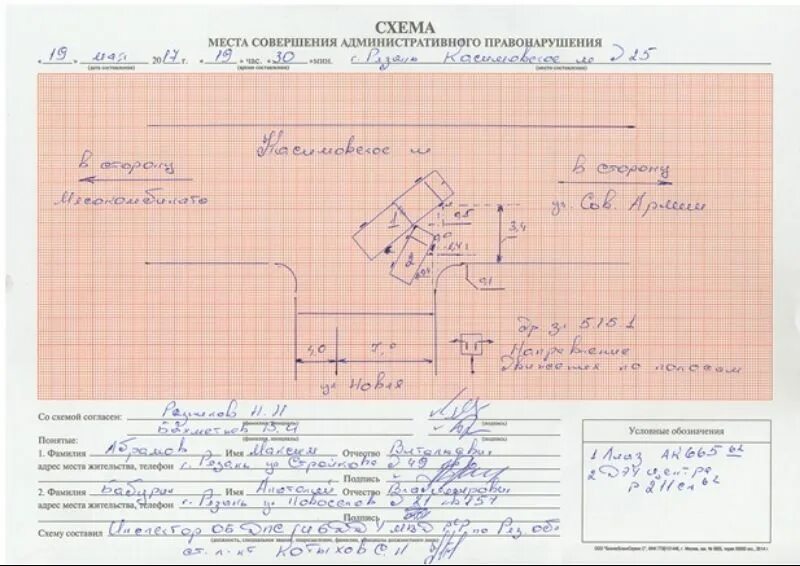 СХЕМА
МЕСТА СОВЕРШЕНИЯ АДМИНИСТРАТИВНОГО ПРАВОНАРУШЕНИЯ
« 19 » май 2017 г. « 19 » час. « 30 » мин. г. Рязань Касимовское ш Д 25
(дата составления) (время составления) (место составления)
Касимовское ш
в сторону
Мясокомбината
в сторону
ул. Сов. Армии
1
2
0,5
3,4
0,1
4,0
7,0
ул Новая
5.15.1
Направление
движения по полосам
Со схемой согласен:
(подпись)
Бахметьев В.И
(фамилия, инициалы) (подпись)
Понятые:
1. Фамилия Абрамов Имя Максим Отчество Витальевич
адрес места жительства, телефон г. Рязань ул Стройкова д 49
Подпись
2. Фамилия Бабурин Имя Анатолий Отчество Владимирович
адрес места жительства, телефон г. Рязань ул Новоселов д 21
Подпись
Схему составил Инспектор ОБ ДПС ГИБДД МВД по Ряз. обл
(должность, специальное звание, подразделение, фамилия, инициалы должностного лица)
ст. л-нт Котыхов С.Н
Условные обозначения
1 АК665 62
2 ДЭУ
Р 211 62